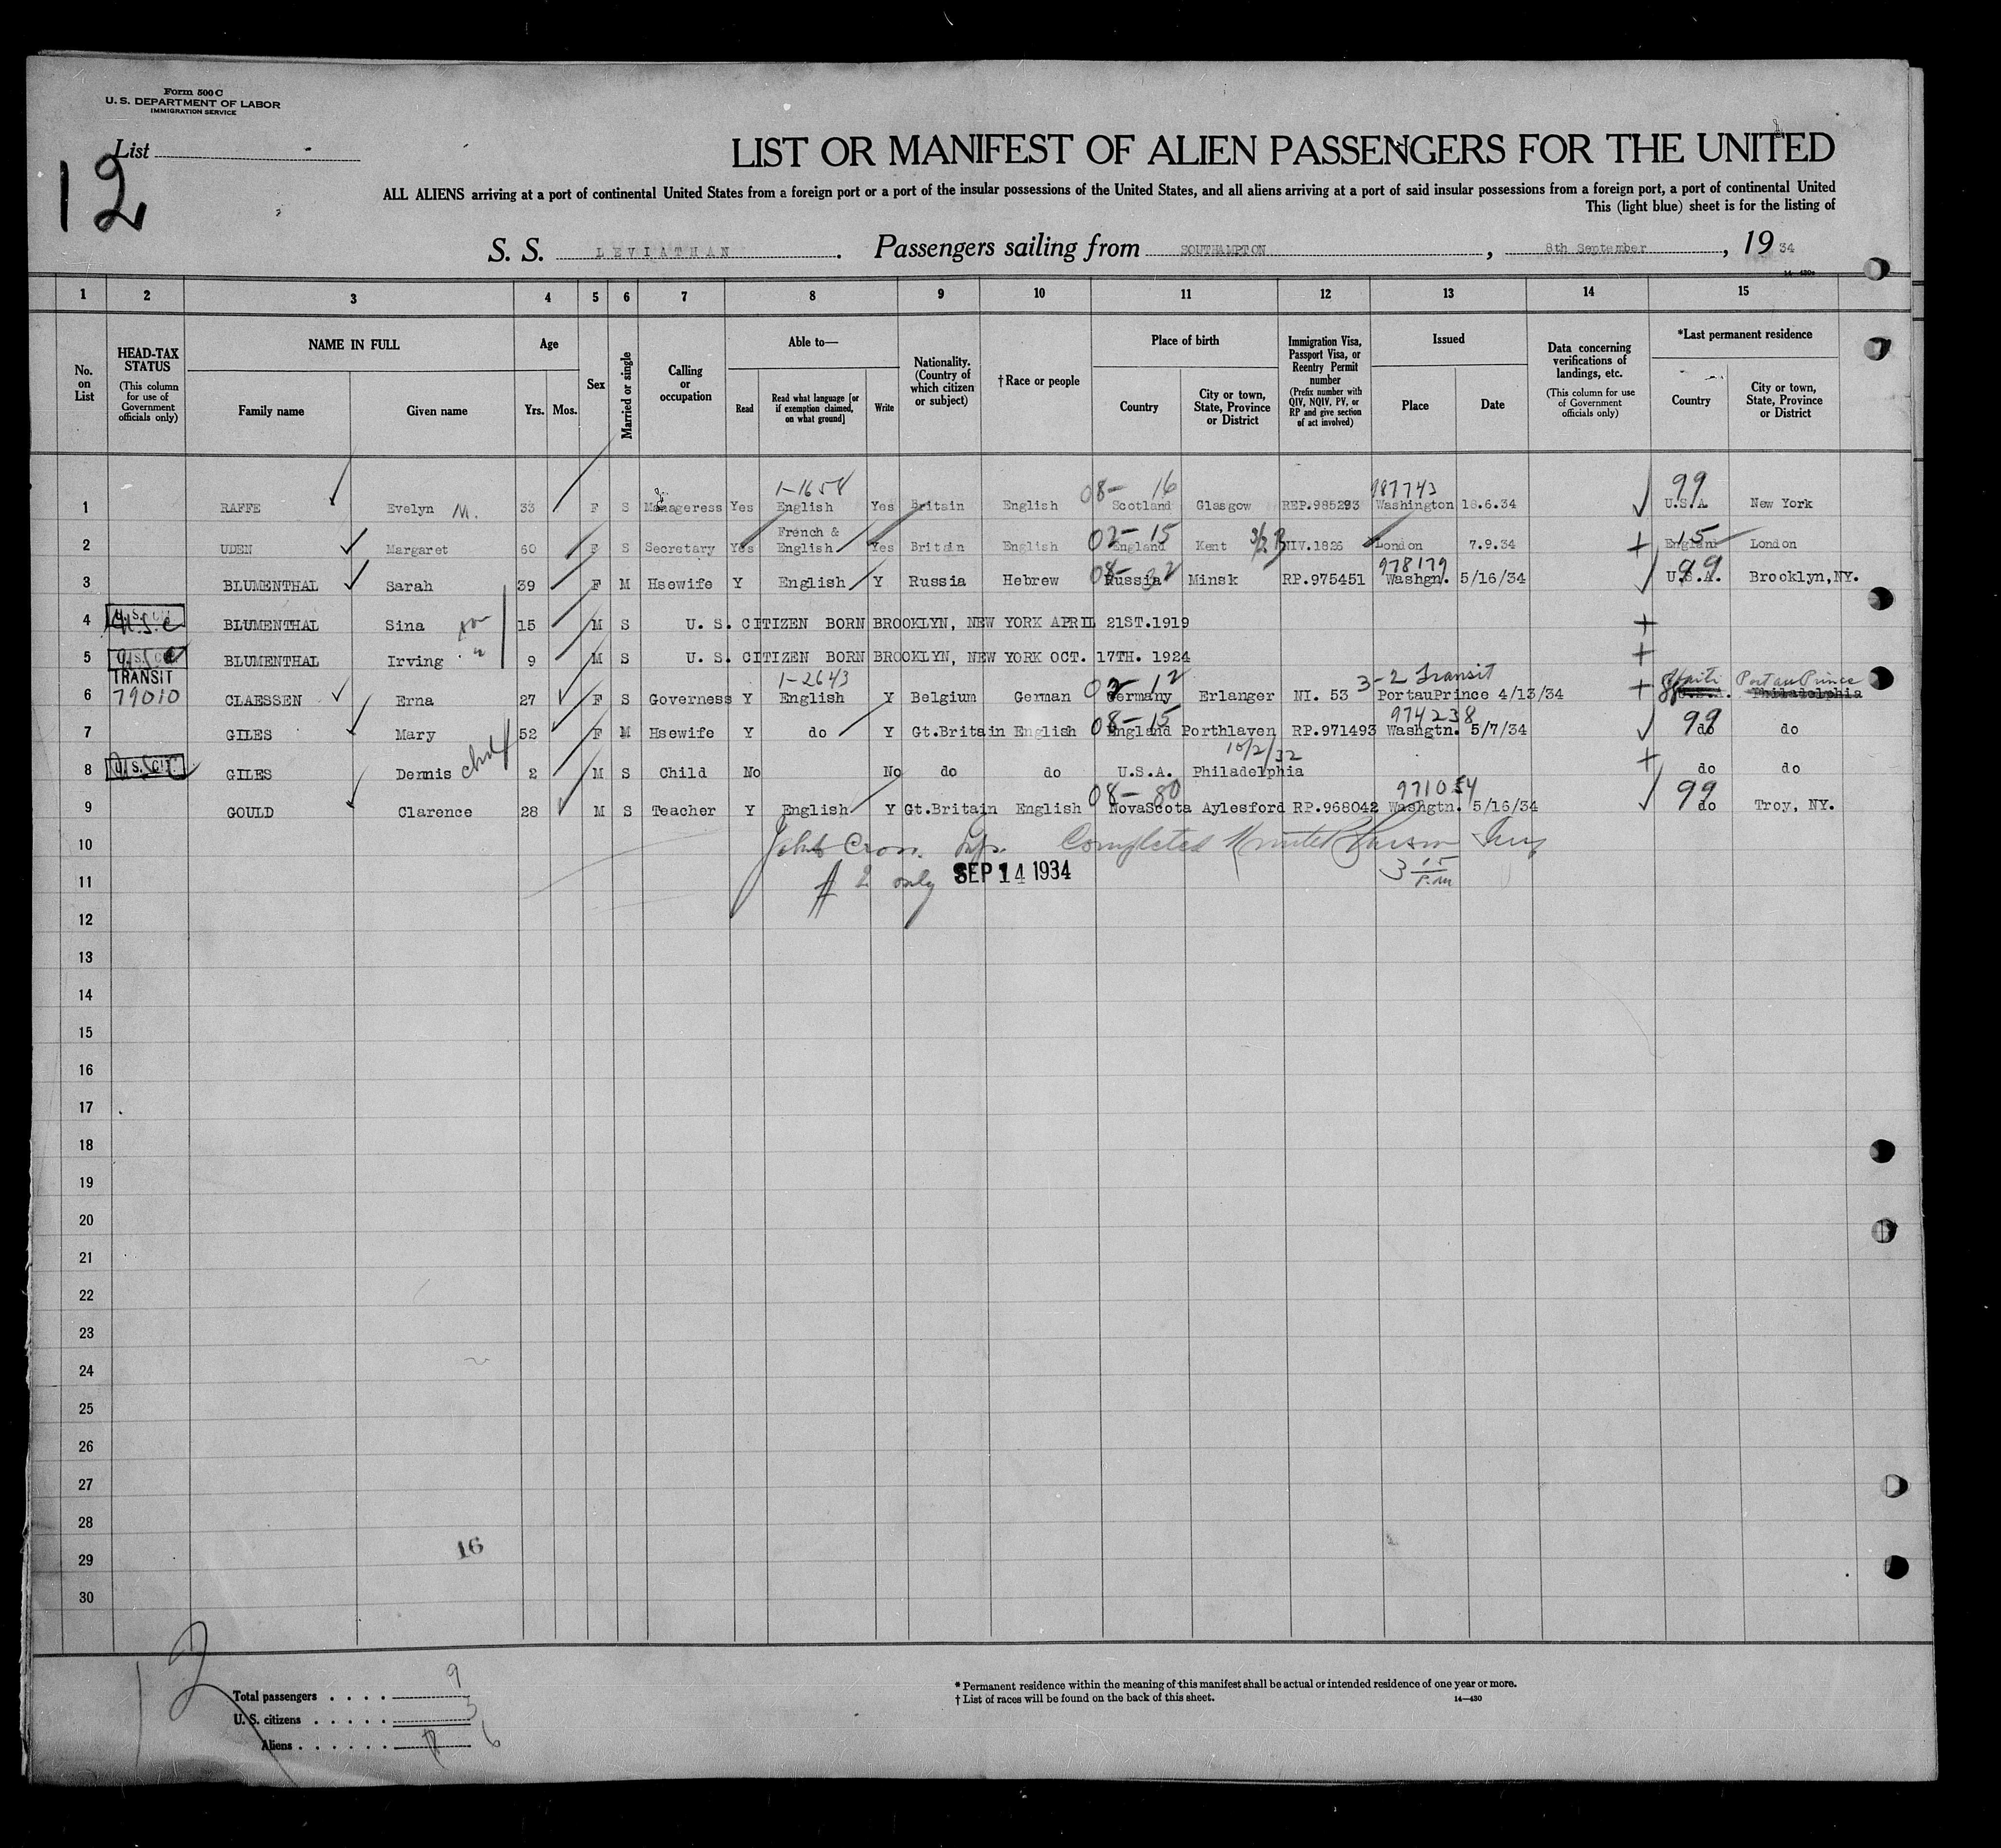 Form 500 C
U. S. DEPARTMENT OF LABOR
IMMIGRATION SERVICE
List
12
LIST OR MANIFEST OF ALIEN PASSENGERS FOR THE UNITED
ALL ALIENS arriving at a port of continental United States from a foreign port or a port of the insular possessions of the United States, and all aliens arriving at a port of said insular possessions from a foreign port, a port of continental United
This (light blue) sheet is for the listing of
S. S. LEVIATHAN. Passengers sailing from SOUTHAMPTON, 8th September, 19 34
14—430a
1 2 3 4 5 6 7 8 9 10 11 12 13 14 15
No. on List
HEAD-TAX STATUS (This column for use of Government officials only)
NAME IN FULL
Family name Given name
Age
Yrs. Mos.
Sex
Married or single
Calling or occupation
Able to—
Read Read what language [or if exemption claimed, on what ground] Write
Nationality. (Country of which citizen or subject)
†Race or people
Place of birth
Country City or town, State, Province or District
Immigration Visa, Passport Visa, or Reentry Permit number (Prefix number with QIV, NQIV, PV, or RP and give section of act involved)
Issued
Place Date
Data concerning verifications of landings, etc. (This column for use of Government officials only)
*Last permanent residence
Country City or town, State, Province or District
1-1658 08- 16 987743 99
1 RAFFE Evelyn M. 33 F S Manageress Yes English Yes Britain English Scotland Glasgow REP.985293 Washington 18.6.34 U.S.A New York
02-15 15
2 UDEN Margaret 60 F S Secretary Yes French & English Yes Britain English England Kent NIV.1826 London 7.9.34 England London
978179 99
3 BLUMENTHAL Sarah 39 F M Hsewife Y English Y Russia Hebrew Russia Minsk RP.975451 Washgn. 5/16/34 U.S.A. Brooklyn,NY.
4 U.S.C BLUMENTHAL Sina 15 M S U. S. CITIZEN BORN BROOKLYN, NEW YORK APRIL 21ST.1919
5 U.S.C BLUMENTHAL Irving " 9 M S U. S. CITIZEN BORN BROOKLYN, NEW YORK OCT. 17TH. 1924
TRANSIT 1-2643 3-2 Transit Haiti Port au Prince
6 79010 CLAESSEN Erna 27 F S Governess Y English Y Belgium German Germany Erlanger NI. 53 PortauPrince 4/13/34 U.S.A. Philadelphia
08-15 974238 99
7 GILES Mary 52 F M Hsewife Y do Y Gt.Britain English England Porthlaven RP.971493 Washgtn. 5/7/34 do do
10/2/32
8 U.S. CIT GILES Dennis child 2 M S Child No No do do U.S.A. Philadelphia do do
08-80 971054 99
9 GOULD Clarence 28 M S Teacher Y English Y Gt.Britain English NovaScota Aylesford RP.968042 Washgtn. 5/16/34 do Troy, NY.
10 Cross Completed
11 # 2 only SEP 14 1934 3 15 P.M
12
13
14
15
16
17
18
19
20
21
22
23
24
25
26
27
28
29
30
16
12
Total passengers . . . . 9
U. S. citizens . . . . . 3
Aliens . . . . . . 6
* Permanent residence within the meaning of this manifest shall be actual or intended residence of one year or more.
† List of races will be found on the back of this sheet. 14—430